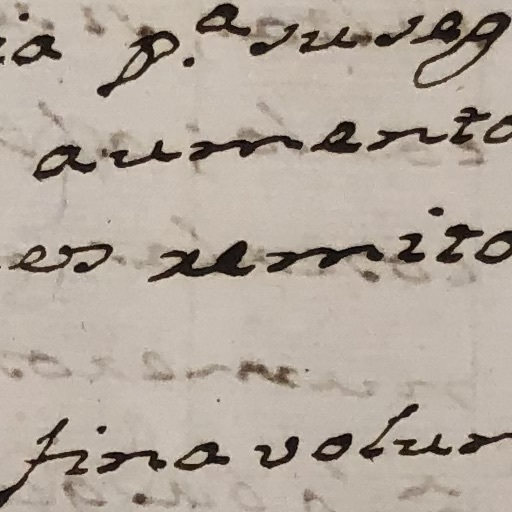 ia p.a su seg
aumento
es remito
fina volun